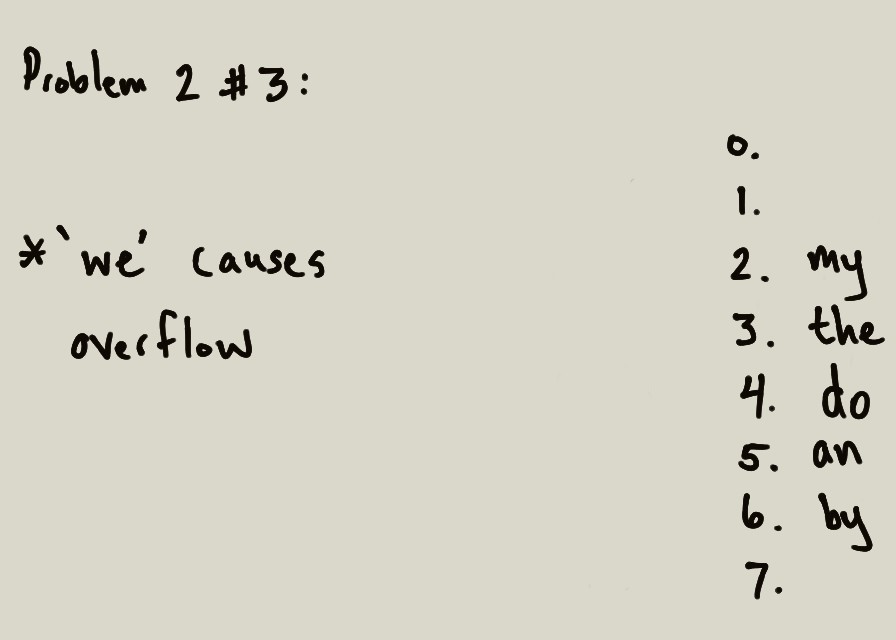 Problem 2 #3:
0.
1.
* `we' causes
overflow
2. my
3. the
4. do
5. an
6. by
7.